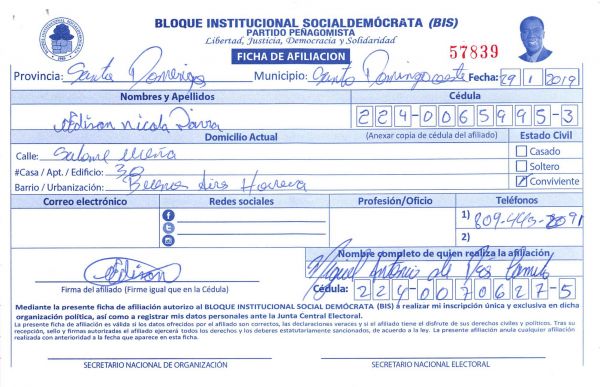 BLOQUE INSTITUCIONAL SOCIALDEMÓCRATA (BIS)
PARTIDO PEÑAGOMISTA
Libertad, Justicia, Democracia y Solidaridad
FICHA DE AFILIACION
57839
Provincia: Santo Domingo Municipio: Santo Domingo oeste Fecha: 29 1 2019
Nombres y Apellidos Cédula
Edison nicola 224-0065995-3
Domicilio Actual (Anexar copia de cédula del afiliado) Estado Civil
Calle: Salome Ureña
Casado
#Casa / Apt. / Edificio: 38
Soltero
Barrio / Urbanización: Buenos Aires Herrera
Conviviente
Correo electrónico Redes sociales Profesión/Oficio Teléfonos
1) 809-463-2091
2)
Nombre completo de quien realiza la afiliación
Miguel Antonio de
Edison
Firma del afiliado (Firme igual que en la Cédula)
Cédula: 224-0070627-5
Mediante la presente ficha de afiliación autorizo al BLOQUE INSTITUCIONAL SOCIAL DEMÓCRATA (BIS) á realizar mi inscripción única y exclusiva en dicha
organización política, así como a registrar mis datos personales ante la Junta Central Electoral.
La presente ficha de afiliación es válida si los datos ofrecidos por el afiliado son correctos, las declaraciones veraces y si el afiliado tiene el disfrute de sus derechos civiles y políticos. Tras su
recepción, sello y firmas autorizadas el afiliado ejercerá todos los derechos y los deberes estatutariamente sancionados, de acuerdo a la ley. La presente afiliación anula cualquier afiliación
realizada con anterioridad a la fecha que aparece en esta ficha.
SECRETARIO NACIONAL DE ORGANIZACIÓN SECRETARIO NACIONAL ELECTORAL